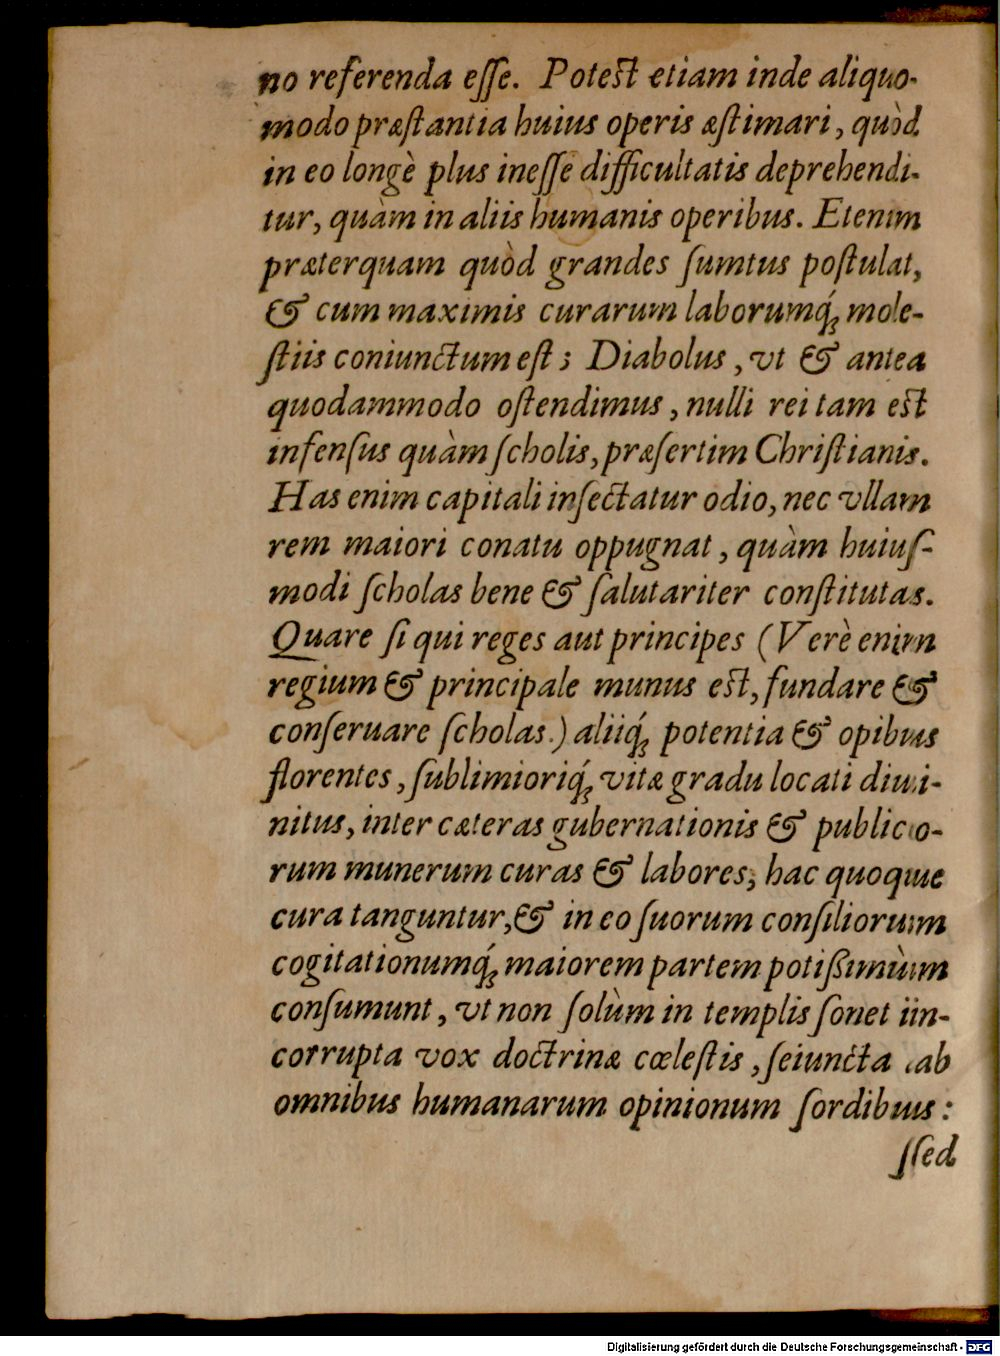 no referenda eſſe. Poteſt etiam inde aliquo-
modo præſtantia huius operis æſtimari, quòd
in eo longè plus ineſſe difficultatis deprehendi-
tur, quàm in aliis humanis operibus. Etenim
præterquam quòd grandes ſumtus poſtulat,
& cum maximis curarum laborumq́; mole-
ſtiis coniunctum eſt; Diabolus, vt & antea
quodammodo oſtendimus, nulli rei tam eſt
infenſus quàm ſcholis, præſertim Chriſtianis.
Has enim capitali inſectatur odio, nec vllam
rem maiori conatu oppugnat, quàm huiuſ-
modi ſcholas bene & ſalutariter conſtitutas.
Quare ſi qui reges aut principes (Verè enim
regium & principale munus eſt, fundare &
conſeruare ſcholas.) aliiq́; potentia & opibus
florentes, ſublimioriq́; vitæ gradu locati diui-
nitus, inter cæteras gubernationis & publico-
rum munerum curas & labores, hac quoque
cura tanguntur, & in eo ſuorum conſiliorum
cogitationumq́; maiorem partem potißimùm
conſumunt, vt non ſolùm in templis ſonet in-
corrupta vox doctrinæ cœleſtis, ſeiuncta ab
omnibus humanarum opinionum ſordibus:
ſed
Digitalisierung gefördert durch die Deutsche Forschungsgemeinschaft - DFG